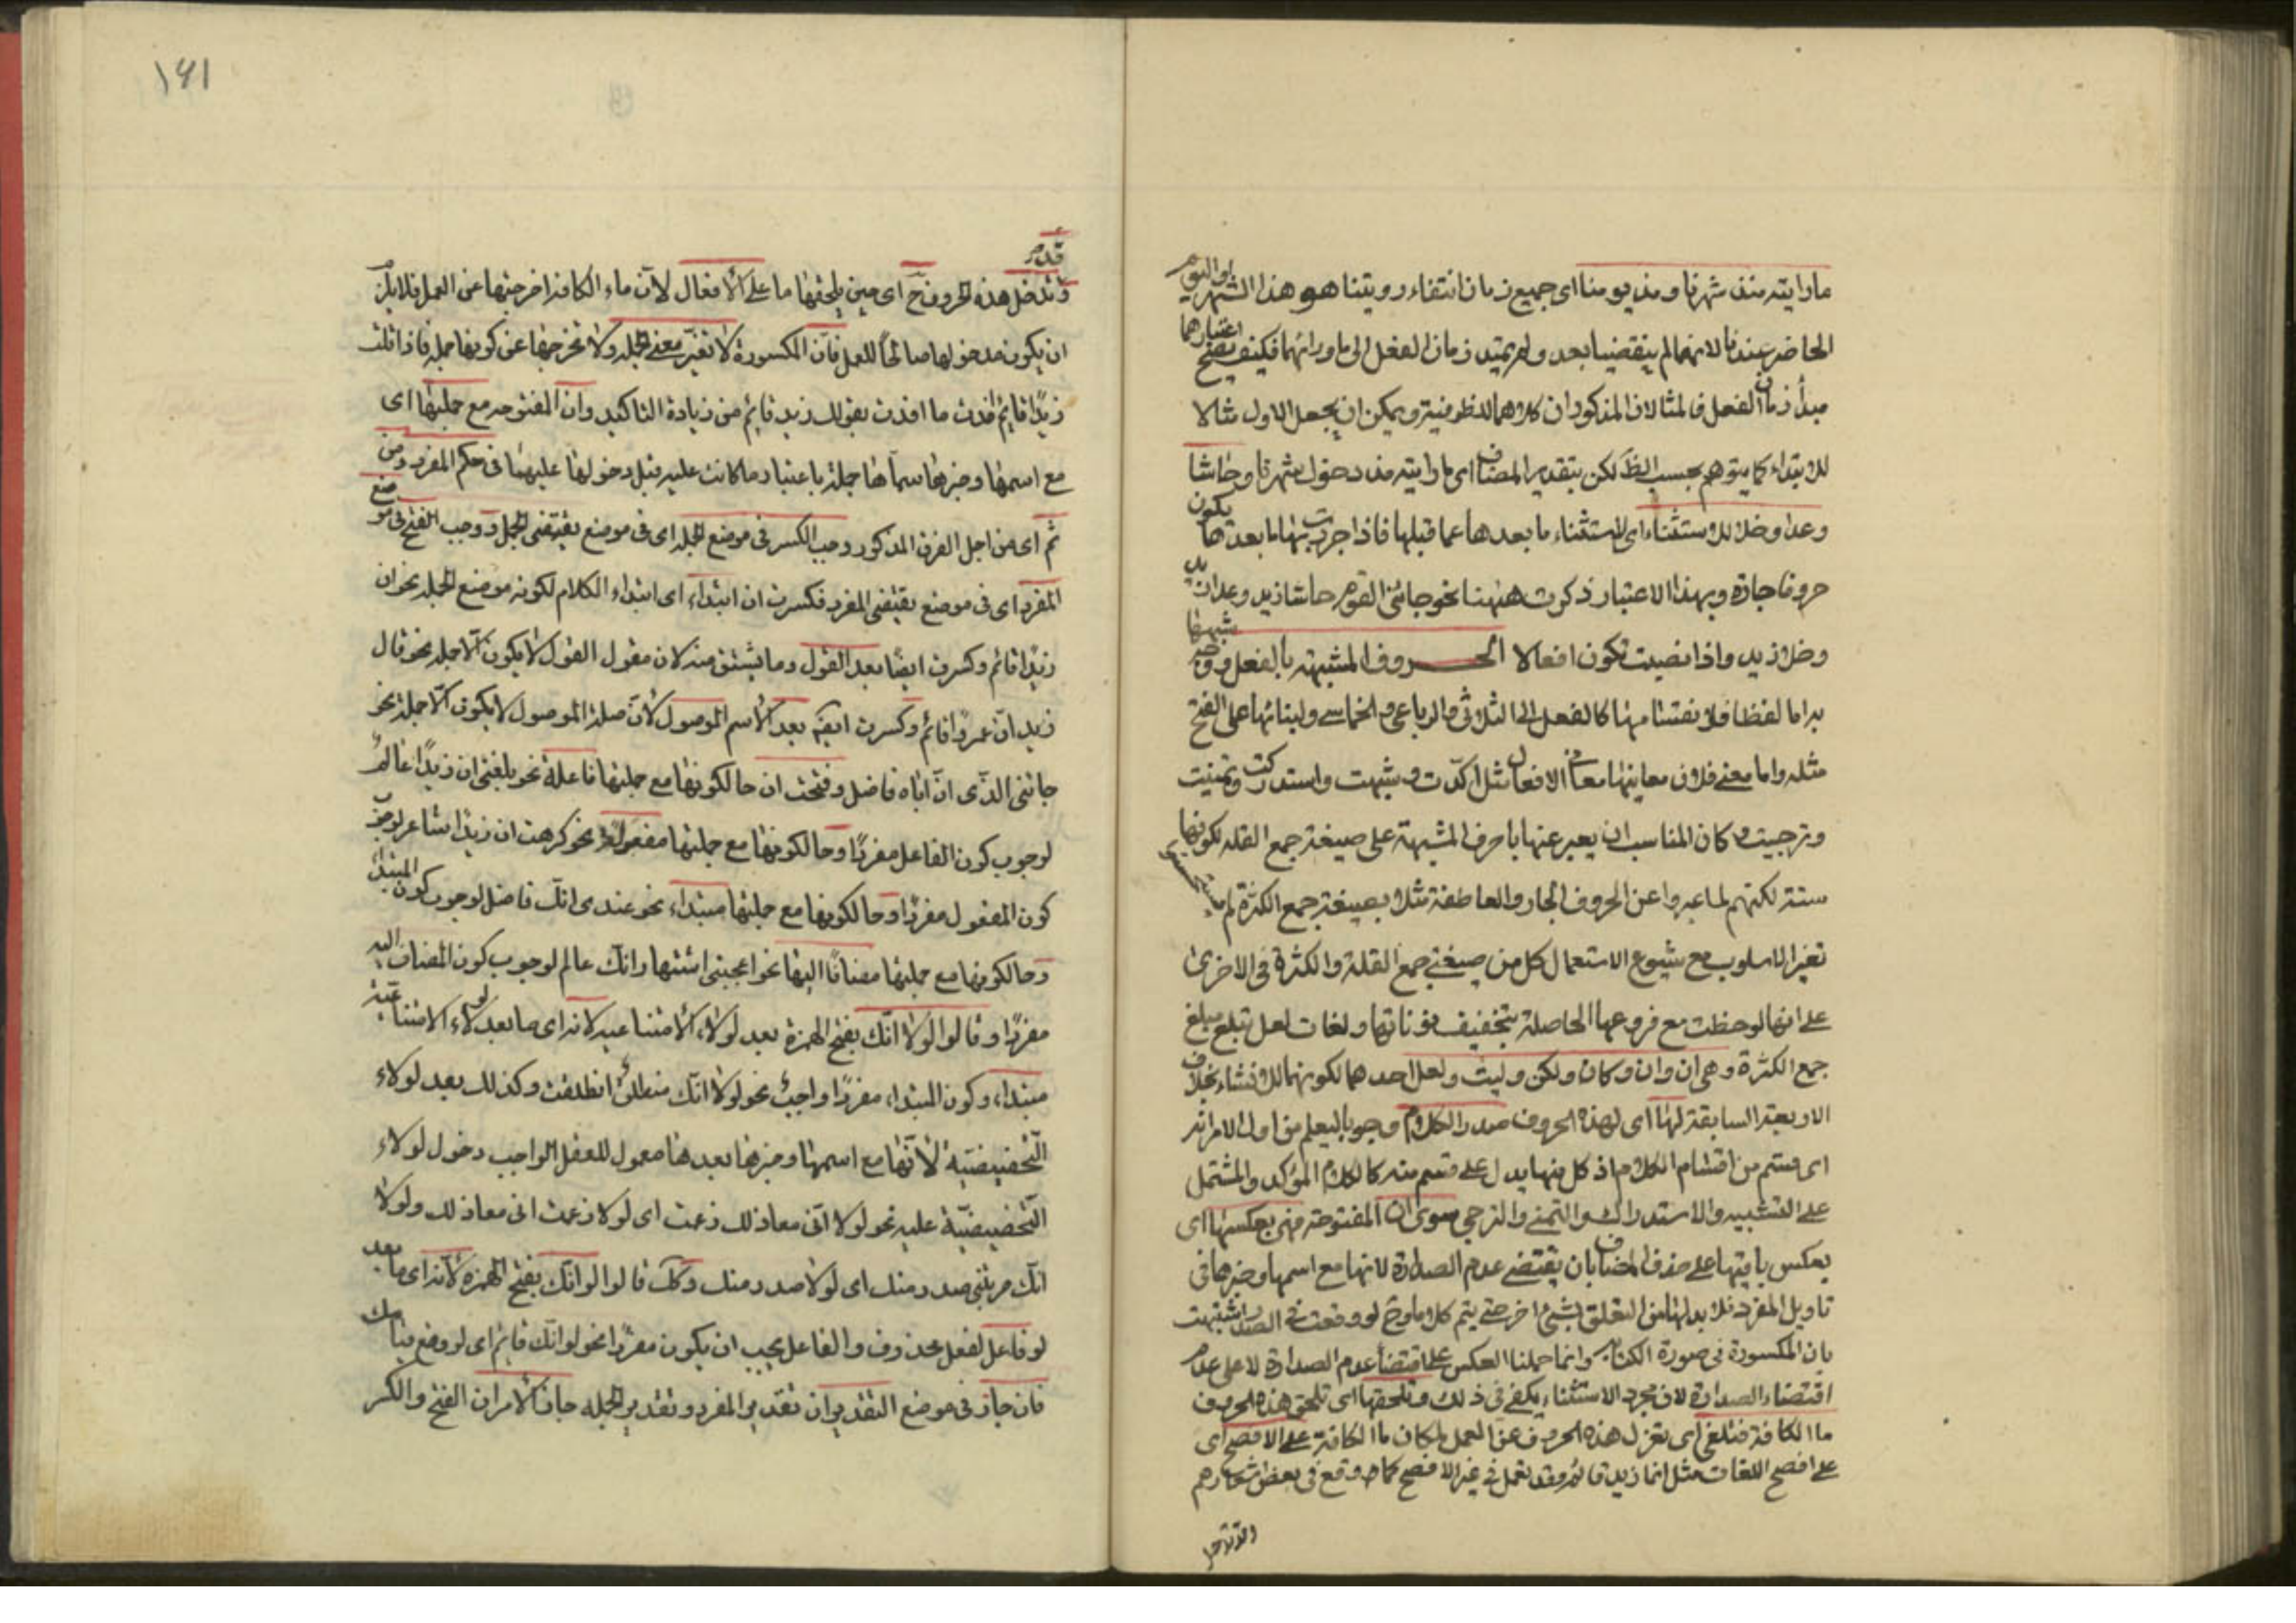 ما رايته منذ شهرنا ومذ يومنا اى جميع زمان انتفاء رويتنا هو هذا الشهر او اليوم
الحاضر عندنا لانهما لم ينقضيا بعد ولم يمتد زمان الفعل الى ما ورائهما فكيف يصح اعتبارهما
مبدأ زمان الفعل فالمثالان المذكوران كلاهما للظرفية ويمكن ان يجعل الاول مثالا
للابتداء كما يتوهم بحسب الظ لكن بتقدير المضاف اى ما رايته مذ دخول شهرنا وحاشا
وعدا وخلا للاستثناء اى لاستثناء ما بعدها عما قبلها فاذا جررت بها ما بعدها يكون
حروفا جارة وبهذا الاعتبار ذكرت ههنا نحو جائنى القوم حاشا زيد وعدا زيد
وخلا زيد واذا نصبت تكون افعالا الحروف المشبهة بالفعل ووجه شبهها
به اما لفظا فلانقسامها كالفعل الى الثلاثى والرباعى والخماسى ولبنائها على الفتح
مثله واما معنى فلان معانيها معانى الافعال مثل اكدت وشبهت واستدركت وتمنيت
وترجيت وكان المناسب ان يعبر عنها باحرف المشبهة على صيغة جمع القلة لكونها
ستة لكنهم لما عبروا عن الحروف الجارة والعاطفة مثلا بصيغة جمع الكثرة لم
تغير الاسلوب مع شيوع الاستعمال كل من صيغتى جمع القلة والكثرة فى الاخرى
على انها لو حظت مع فروعها الحاصلة بتخفيف نوناتها ولغات لعل تبلغ مبلغ
جمع الكثرة وهى ان وان وكان ولكن وليت ولعل احدهما لكونهما للانشاء بخلاف
الاربعة السابقة لها اى لهذه الحروف صدر الكلام وجوبا ليعلم من اول الامر انه
اى قسم من اقسام الكلام اذ كل منها يدل على قسم منه كالكلام المؤكد والمشتمل
على التشبيه والاستدراك والتمنى والترجى سوى ان المفتوحة فهى بعكسها اى
بعكس باقيتها على حذف المضاف بان يقتضى عدم الصدارة لانها مع اسمها وخبرها فى
تاويل المفرد فلا بد لها من التعلق بشئ اخر حتى يتم كلاما وح لو وقعت فى الصدر اشتبهت
بان المكسورة فى صورة الكتابة وانما حملنا العكس على اقتضاء عدم الصدارة لا على عدم
اقتضاء الصدارة لان مجرد الاستثناء يكفى فى ذلك وتلحقها اى تلحق هذه الحروف
ما الكافة فتلغى اى تعزل هذه الحروف عن العمل لمكان ما الكافة على الافصح اى
على افصح اللغات مثل انما زيد قائم وقد تعمل فى غير الافصح كما وقع فى بعض اشعارهم
١٦١
وتدخل هذه الحروف ح اى حين يلحقها ما على الافعال لان ماء الكافة اخرجتها عن العمل فلا يلزم
ان يكون مدخولها صالحا للعمل فان المكسورة لا تغير معنى الجملة ولا تخرجها عن كونها جملة فاذا قلت
زيدا قايم افدت ما افدت بقولك زيد قايم من زيادة التاكيد وان المفتوحة مع جملتها اى
مع اسمها وخبرها سماها جملة باعتبار ما كانت عليه قبل دخولها عليهما فى حكم المفرد ومن
ثم اى من اجل الفرق المذكور وجب الكسر فى موضع الجملة اى فى موضع يقتضى الجمل ووجب الفتح فى موضع
المفرد اى فى موضع يقتضى المفرد فكسرت ان ابتداء اى ابتداء الكلام لكونه موضع الجملة نحو ان
زيدا قائم وكسرت ايضا بعد القول وما يشتق منه لان مقول القول لا يكون الا جملة نحو قال
زيد ان عمروا قائم وكسرت ايضا بعد الاسم الموصول لان صلة الموصول لا يكون الا جملة نحو
جائنى الذى ان اباه فاضل وفتحت ان حالكونها مع جملتها فاعلة نحو بلغنى ان زيدا عالم
لوجوب كون الفاعل مفردا وحالكونها مع جملتها مفعولة نحو كرهت ان زيدا شاعر لوجوب
كون المفعول مفردا وحالكونها مع جملتها مبتداء نحو عندى انك فاضل لوجوب كون المبتدا
وحالكونها مع جملتها مضافا اليها نحو اعجبنى اشتهار انك عالم لوجوب كون المضاف اليه
مفردا وقالوا لولا انك بفتح الهمزة بعد لولا الامتناعية لانه اى ما بعد لولاء الامتناعية
مبتداء وكون المبتداء مفردا واجب نحو لولا انك منطلق انطلقت وكذلك بعد لولاء
التحضيضية لانها مع اسمها وخبرها بعدها معمول للفعل الواجب دخول لولاء
التحضيضية عليه نحو لولا انى معاذ لك زعمت اى لولا زعمت انى معاذ لك ولولا
انك ضربتنى صدر منك اى لولا صدر منك وكك قالوا لو انك بفتح الهمزة لانه اى ما بعد
لو فاعل لفعل محذوف والفاعل يجب ان يكون مفردا نحو لو انك قايم اى لو وقع قيامك
فان جاز فى موضع التقديران تقدير المفرد وتقدير الجملة جاز الامران الفتح والكسر